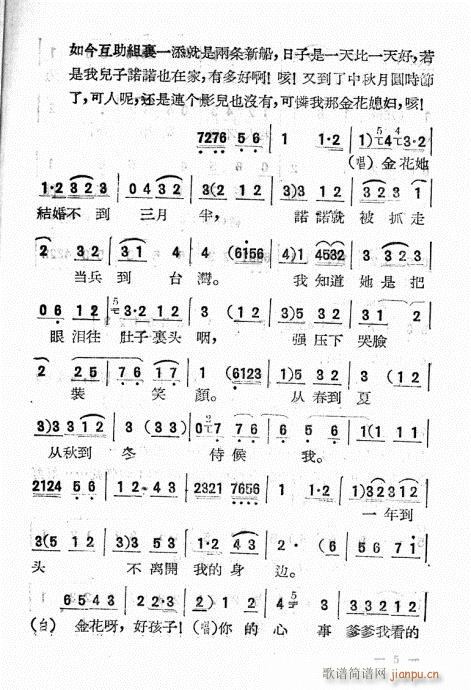 如今互助組裏一添就是兩条新船，日子是一天比一天好，若
是我兒子諾諾也在家，有多好啊！咳！又到了中秋月圓時節
了，可人呢，还是連个影兒也沒有，可憐我那金花媳妇，咳！
7276 5 6 | 1 1·2 | 1) 4 3·2 |
（唱）金花她
1·2 3 2 3 | 0 4 3 2 | 3(2 1 2 | 3)3 1 2 | 3 2 3 1 |
結婚不到 三月 半， 諾諾就 被抓走
2 3 2 | 3 1 4 | 4 (6156 | 4)1 4532 | 3 3 2 3 |
当兵到 台 灣。 我知道 她是把
0 6 1 2 | 3·2 1 2 | 3 (3 2 1 2 | 3)5 3 5 | 3 1 2 |
眼泪往 肚子裏头 咽， 强压下 哭臉
2 2 5 | 7 6 5 | 1 (6123 | 1)5 3 2 | 3 (1 2 |
裝 笑 顏。 从春到 夏
3)3 3 1 2 | 3 (2 3 | 0 7 7 6 | 5 6 5 | 1 (1 1 |
从秋到 冬 侍候 我。
2124 5 6 | 1·2 4 3 | 2321 7656 | 1 1·2 | 1)3 2312 |
一年到
3(5 1 2 | 3)2 1 2 | 1·2 4 3 | 2· (6 | 5 6 7 i |
头 不离開 我的身 边。
6543 | 2 3 2 1) | 1 2 1 2 | 4 3 | 3 3 2 1 2 |
（白）金花呀，好孩子！（唱）你的 心 事 爹爹我看的
— 5 —
歌谱简谱网
jianpu.cn